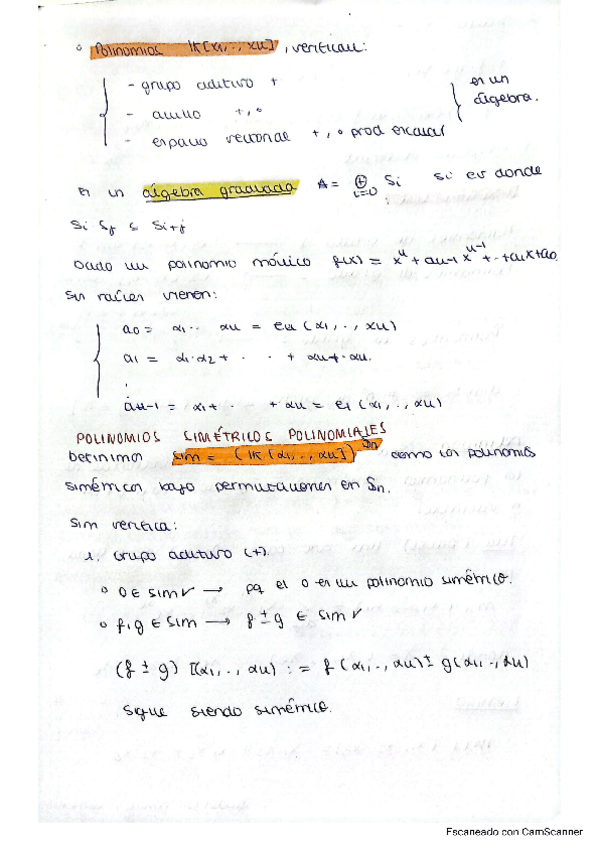 ° Polinomios K[x1,.., xn], verifican:
- grupo aditivo +
- anillo +, ∘
- espacio vectorial +, ∘ prod escalar
es un álgebra.
es un álgebra graduada A = ⊕ i=0 Si si es donde
Si Sj ⊆ Si+j
Dado un polinomio mónico f(x) = x^n + an-1 x^n-1 + ·· + a1x + a0
Sus raíces vienen:
a0 = α1 ·· αn = en (α1, .., xn)
a1 = α1·α2 + · · + αn-1·αn.
an-1 = α1 + · · + αn = e1 (α1, .., αn)
POLINOMIOS SIMÉTRICOS POLINOMIALES
Definimos sim = (K[α1, .., αn])^Sn como los polinomios
simétricos bajo permutaciones en Sn.
Sim verifica:
1. Grupo aditivo (+).
° 0 ∈ Sim ✓ → pq el 0 es un polinomio simétrico.
° f, g ∈ Sim → f ± g ∈ Sim ✓
(f ± g) [(α1, .., αn) := f (α1, .., αn) ± g(α1, .., αn)
sigue siendo simétrico.
Escaneado con CamScanner